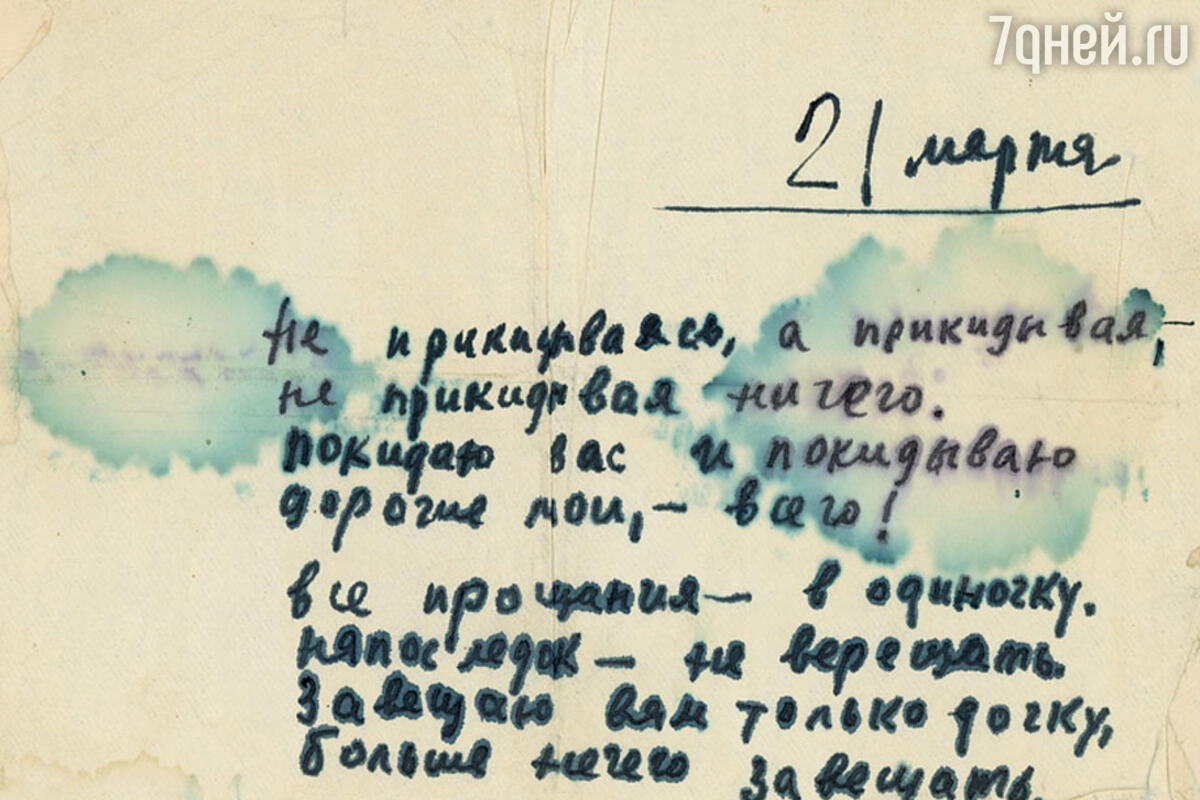 7дней.ru
21 марта
Не прикидываясь, а прикидывая,—
не прикидывая ничего.
покидаю вас и покидываю
дорогие мои,— всего!
все прощания— в одиночку.
напоследок— не верещать.
Завещаю вам только дочку,
больше нечего завещать.